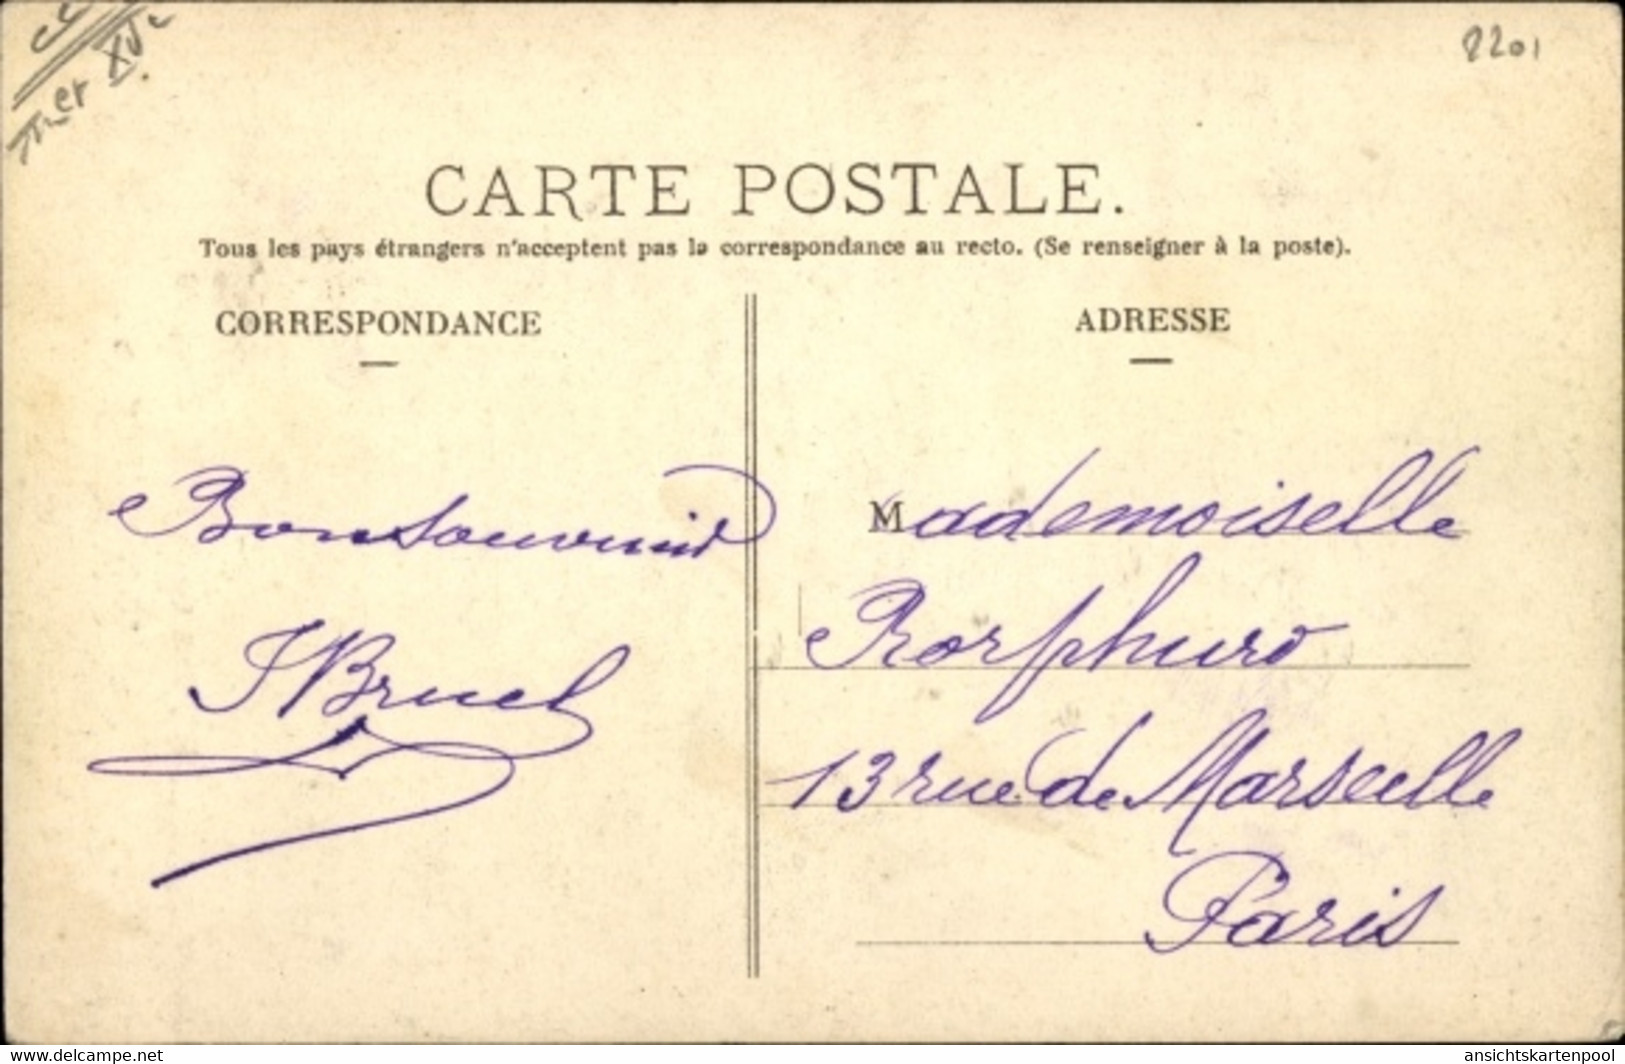 2201
CARTE POSTALE.
Tous les pays étrangers n'acceptent pas la correspondance au recto. (Se renseigner à la poste).
CORRESPONDANCE
ADRESSE
Bon Souvenir
Bruel
Mademoiselle
13 rue de Marseille
Paris
www.delcampe.net
ansichtskartenpool